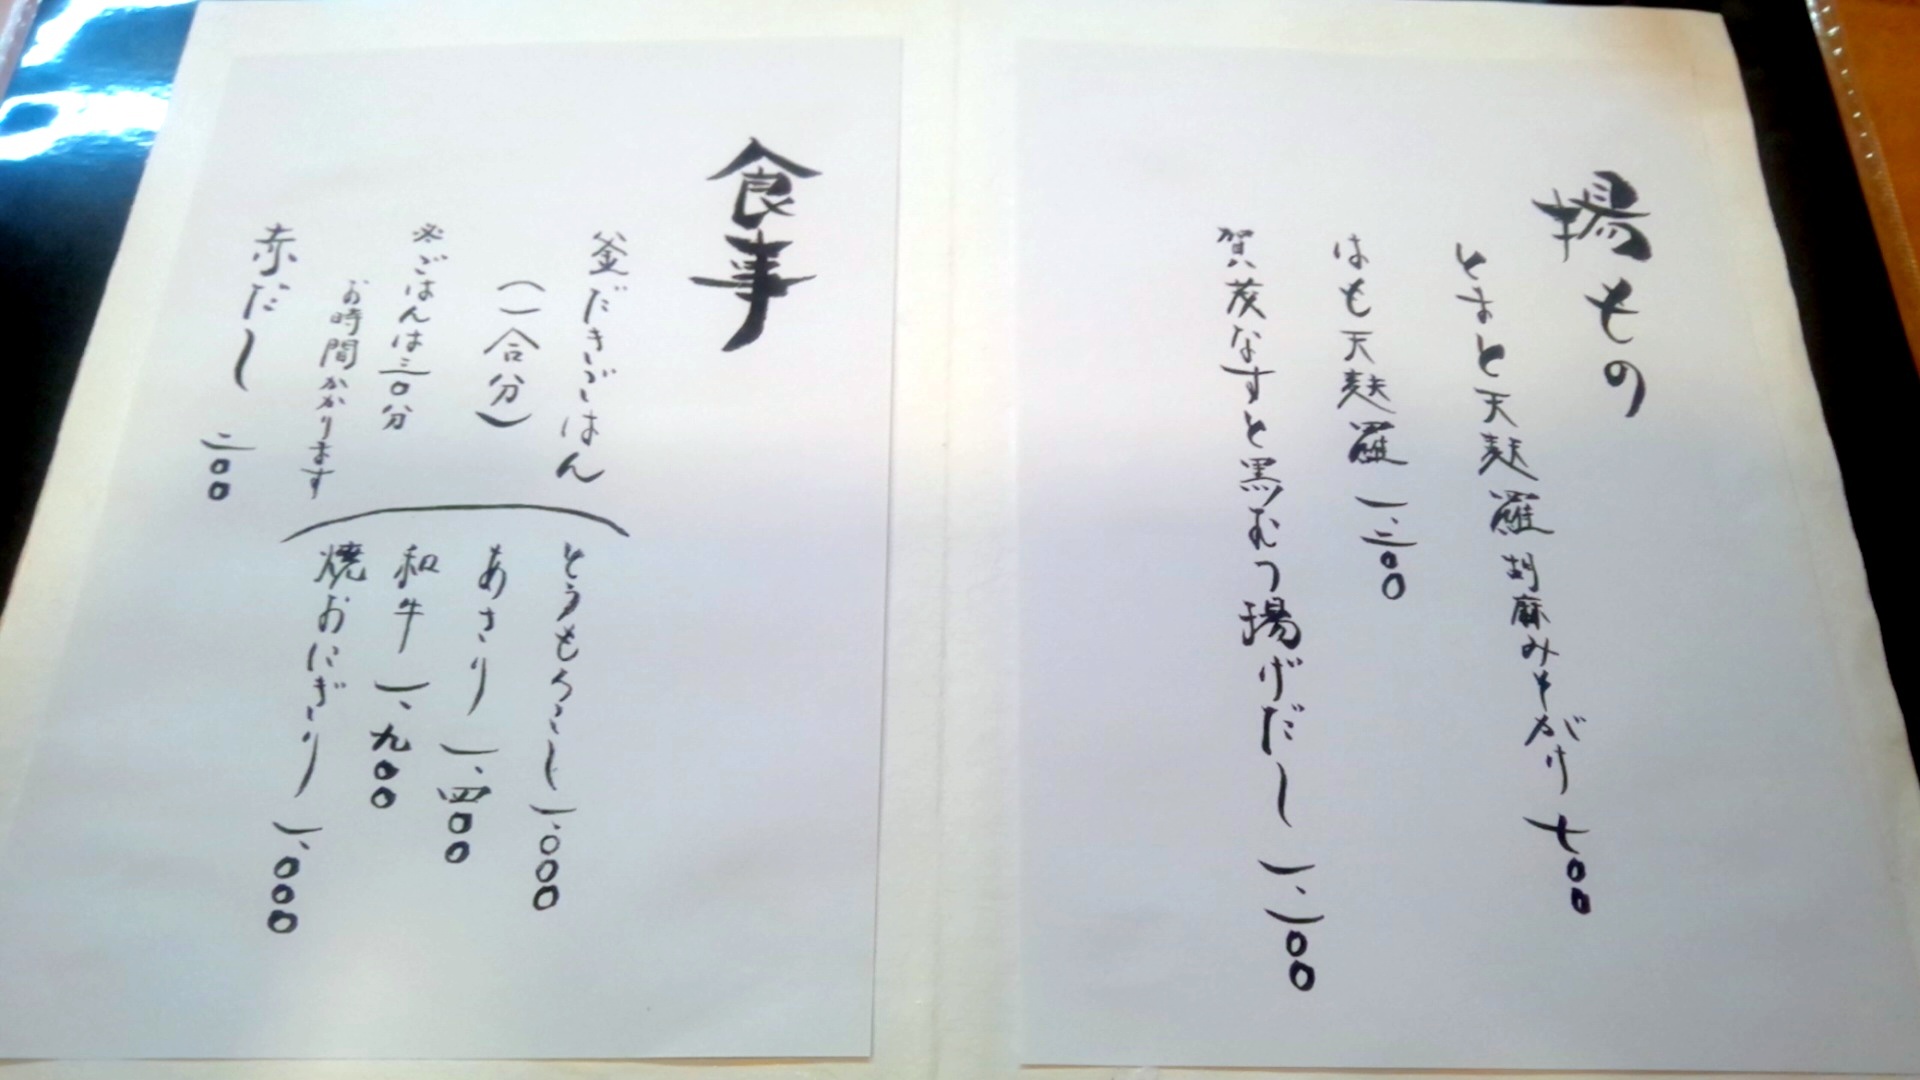 揚もの
とまと天麩羅 胡麻みそがけ 七〇〇
はも天麩羅 一、二〇〇
賀茂なすと黒むつ揚げだし 一、一〇〇
食事
釜だきごはん
(一合分)
※ごはんは三〇分
お時間かかります
とうもろこし 一、〇〇〇
あさり 一、四〇〇
和牛 一、九〇〇
焼おにぎり 一、〇〇〇
赤だし 二〇〇